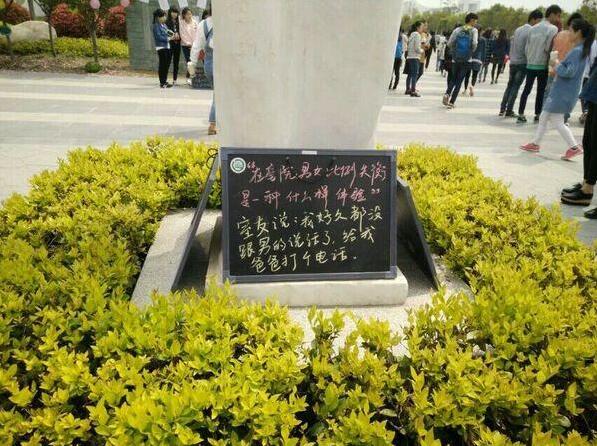 “在医院,男女比例失衡
是一种什么样体验”
室友说:我好久都没
跟男的说话了,给我
爸爸打个电话.